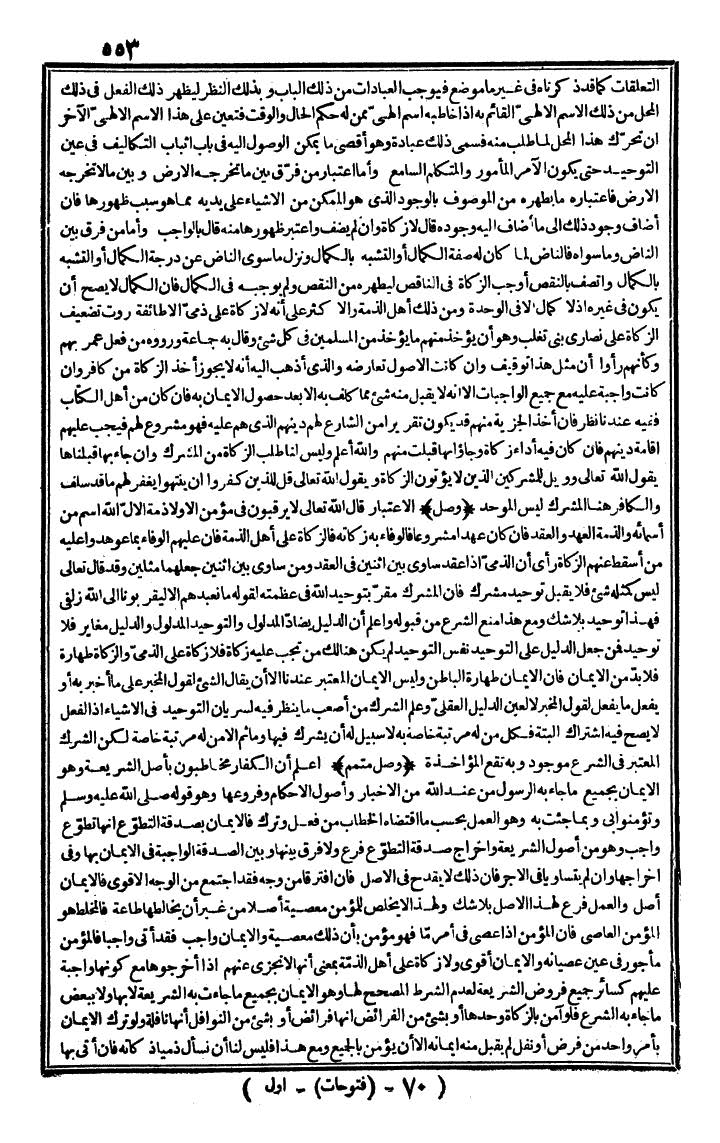 ٥٥٣
التعلقات كما قد ذكرناه فى غير ما موضع فيوجب العبادات من ذلك الباب وبذلك النظر ليظهر ذلك الفعل فى ذلك
المحل من ذلك الاسم الالهىّ القائم به اذا خاطبه اسم الهىّ ممن له حكم الحال والوقت فتعين على هذا الاسم الالهىّ الآخر
ان تحرّك هذا المحل لما طلب منه فسمى ذلك عبادة وهو أقصى ما يمكن الوصول اليه فى باب اثبات التكاليف فى عين
التوحيد حتى يكون الآمر المأمور والمتكلم السامع وأما اعتبار من فرّق بين ما تخرجه الارض وبين ما لا تخرجه
الارض فاعتباره ما يطهره من الموصوف بالوجود الذى هو الممكن من الاشياء على يديه مما هو سبب ظهورها فان
أضاف وجود ذلك الى ما أضاف اليه وجوده قال لا زكاة وان لم يضف واعتبر ظهورها منه قال بالواجب وأما من فرق بين
الناض وما سواه فالناض لما كان له صفة الكمال أو التشبه بالكمال ونزل ما سوى الناض عن درجة الكمال أو التشبه
بالكمال واتصف بالنقص أوجب الزكاة فى الناقص ليطهره من النقص ولم يوجبه فى الكمال فان الكمال لا يصح أن
يكون فى غيره اذ لا كمال الا فى الوحدة ومن ذلك أهل الذمة والاكثر على أنه لا زكاة على ذمىّ الاطائفة روت تضعيف
الزكاة على نصارى بنى تغلب وهو أن يؤخذ منهم ما يؤخذ من المسلمين فى كل شئ وقال به جماعة ورووه من فعل عمر بهم
وكأنهم رأوا أن مثل هذا توقيف وان كانت الاصول تعارضه والذى أذهب اليه أنه لا يجوز أخذ الزكاة من كافر وان
كانت واجبة عليه مع جميع الواجبات الا انه لا يقبل منه شئ مما كلف به الا بعد حصول الايمان به فان كان من أهل الكتاب
ففيه عندنا نظر فان أخذ الجزية منهم قد يكون تقريرا من الشارع لهم دينهم الذى هم عليه فهو مشروع لهم فيجب عليهم
اقامة دينهم فان كان فيه أداء زكاة وجاؤا بها قبلت منهم والله أعلم وليس لنا طلب الزكاة من المشرك وان جاء بها قبلناها
يقول الله تعالى وويل للمشركين الذين لا يؤتون الزكاة ويقول الله تعالى قل للذين كفروا ان ينتهوا يغفر لهم ما قد سلف
والكافر هنا المشرك ليس الموحد ﴿وصل﴾ الاعتبار قال الله تعالى لا يرقبون فى مؤمن الا ولا ذمة الالّ الله اسم من
أسمائه والذمة العهد والعقد فان كان عهدا مشروعا فالوفاء به زكاته فالزكاة على أهل الذمة فان عليهم الوفاء بما عوهدوا عليه
من أسقط عنهم الزكاة رأى أن الذمىّ اذا عقد ساوى بين اثنين فى العقد ومن ساوى بين اثنين جعلهما مثلين وقد قال تعالى
ليس كمثله شئ فلا يقبل توحيد مشرك فان المشرك مقرّ بتوحيد الله فى عظمته لقوله ما نعبدهم الا ليقربونا الى الله زلفى
فهذا توحيد بلا شك ومع هذا منع الشرع من قبوله واعلم أن الدليل يضادّ المدلول والتوحيد المدلول والدليل مغاير فلا
توحيد فمن جعل الدليل على التوحيد نفس التوحيد لم يكن هنالك من تجب عليه زكاة فلا زكاة على الذمىّ والزكاة طهارة
فلا بدّ من الايمان فان الايمان طهارة الباطن وليس الايمان المعتبر عندنا الا أن يقال الشئ لقول المخبر على ما أخبر به أو
يفعل ما يفعل لقول المخبر لا لعين الدليل العقلىّ وعلم الشرك من أصعب ما ينظر فيه لسريان التوحيد فى الاشياء اذ الفعل
لا يصح فيه اشتراك البتة فكل من له مرتبة خاصة به لا سبيل له أن يشرك فيها وما ثم الا من له مرتبة خاصة لكن الشرك
المعتبر فى الشرع موجود وبه تقع المؤاخذة ﴿وصل متمم﴾ اعلم أن الكفار مخاطبون بأصل الشريعة وهو
الايمان بجميع ما جاء به الرسول من عند الله من الاخبار وأصول الاحكام وفروعها وهو قوله صلى الله عليه وسلم
وتؤمنوا بى وبما جئت به وهو العمل بحسب ما اقتضاه الخطاب من فعل وترك فالايمان بصدقة التطوّع انها تطوّع
واجب وهو من أصول الشريعة واخراج صدقة التطوّع فرع ولا فرق بينها وبين الصدقة الواجبة فى الايمان بها وفى
اخراجها وان لم يتساويا فى الاجر فان ذلك لا يقدح فى الاصل فان افترقا من وجه فقد اجتمع من الوجه الاقوى فالايمان
أصل والعمل فرع لهذا الاصل بلا شك ولهذا لا يخلص للمؤمن معصية أصلا من غير أن يخالطها طاعة فالمخلط هو
المؤمن العاصى فان المؤمن اذا عصى فى أمر مّا فهو مؤمن بأن ذلك معصية والايمان واجب فقد أتى واجبا فالمؤمن
مأجور فى عين عصيانه والايمان أقوى ولا زكاة على أهل الذمّة بمعنى أنها لا تجزى عنهم اذا أخرجوها مع كونها واجبة
عليهم كسائر جميع فروض الشريعة لعدم الشرط المصحح لها وهو الايمان بجميع ما جاءت به الشريعة لا بها ولا ببعض
ما جاء به الشرع فلو آمن بالزكاة وحدها أو بشئ من الفرائض انها فرائض أو بشئ من النوافل أنها نافلة ولو ترك الايمان
بأمر واحد من فرض أو نفل لم يقبل منه ايمانه الا أن يؤمن بالجميع ومع هذا فليس لنا أن نسأل ذميا زكاته فان أتى بها
( ٧٠ - (فتوحات) - اول )